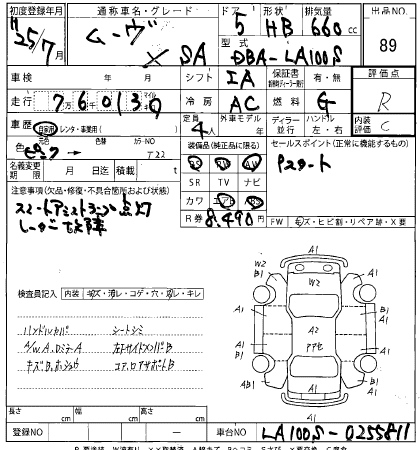 初度登録年月 通称車名・グレード ドア 形状 排気量 出品NO.
H25/7月 ムーヴ X SA 5 HB 660cc 89
型式 DBA-LA100S
車検 年 月 シフト IA 保証書 有・無 評価点
走行 76,013 冷房 AC 燃料 G R
車歴 自家用 レンタ・事業用( ) 定員 4人 外車モデル 年 ディラー 並行 ハンドル 左・右 内装評価 C
色 ピンク → 色替 カラーNO T22 装備品(純正品に限る) セールスポイント(正常に機能するもの)
名義変更期限 月 日 積載 t Pスタート
SR TV ナビ
注意事項(欠品・修復・不具合箇所および状態) カワ エアB
スマートアシストランプ点灯 R券 8,490円
レーダー故障 FW キズ・ヒビ割・リペア跡・X要
検査員記入 内装 キズ・汚レ・コゲ・穴・ガレ・キレ
ハンドルカバー シートシミ
A/W A, Dミラー A 左右サイドメンバB
キズB、ホショウ コア、ロアサポートB
A1
W2 W2 A1
B1 B1
A1 A1
A2
アケセ
A1 A1
AB1 B1
A1
長さ cm 幅 cm 高さ cm
登録NO 車台NO LA100S-0255811